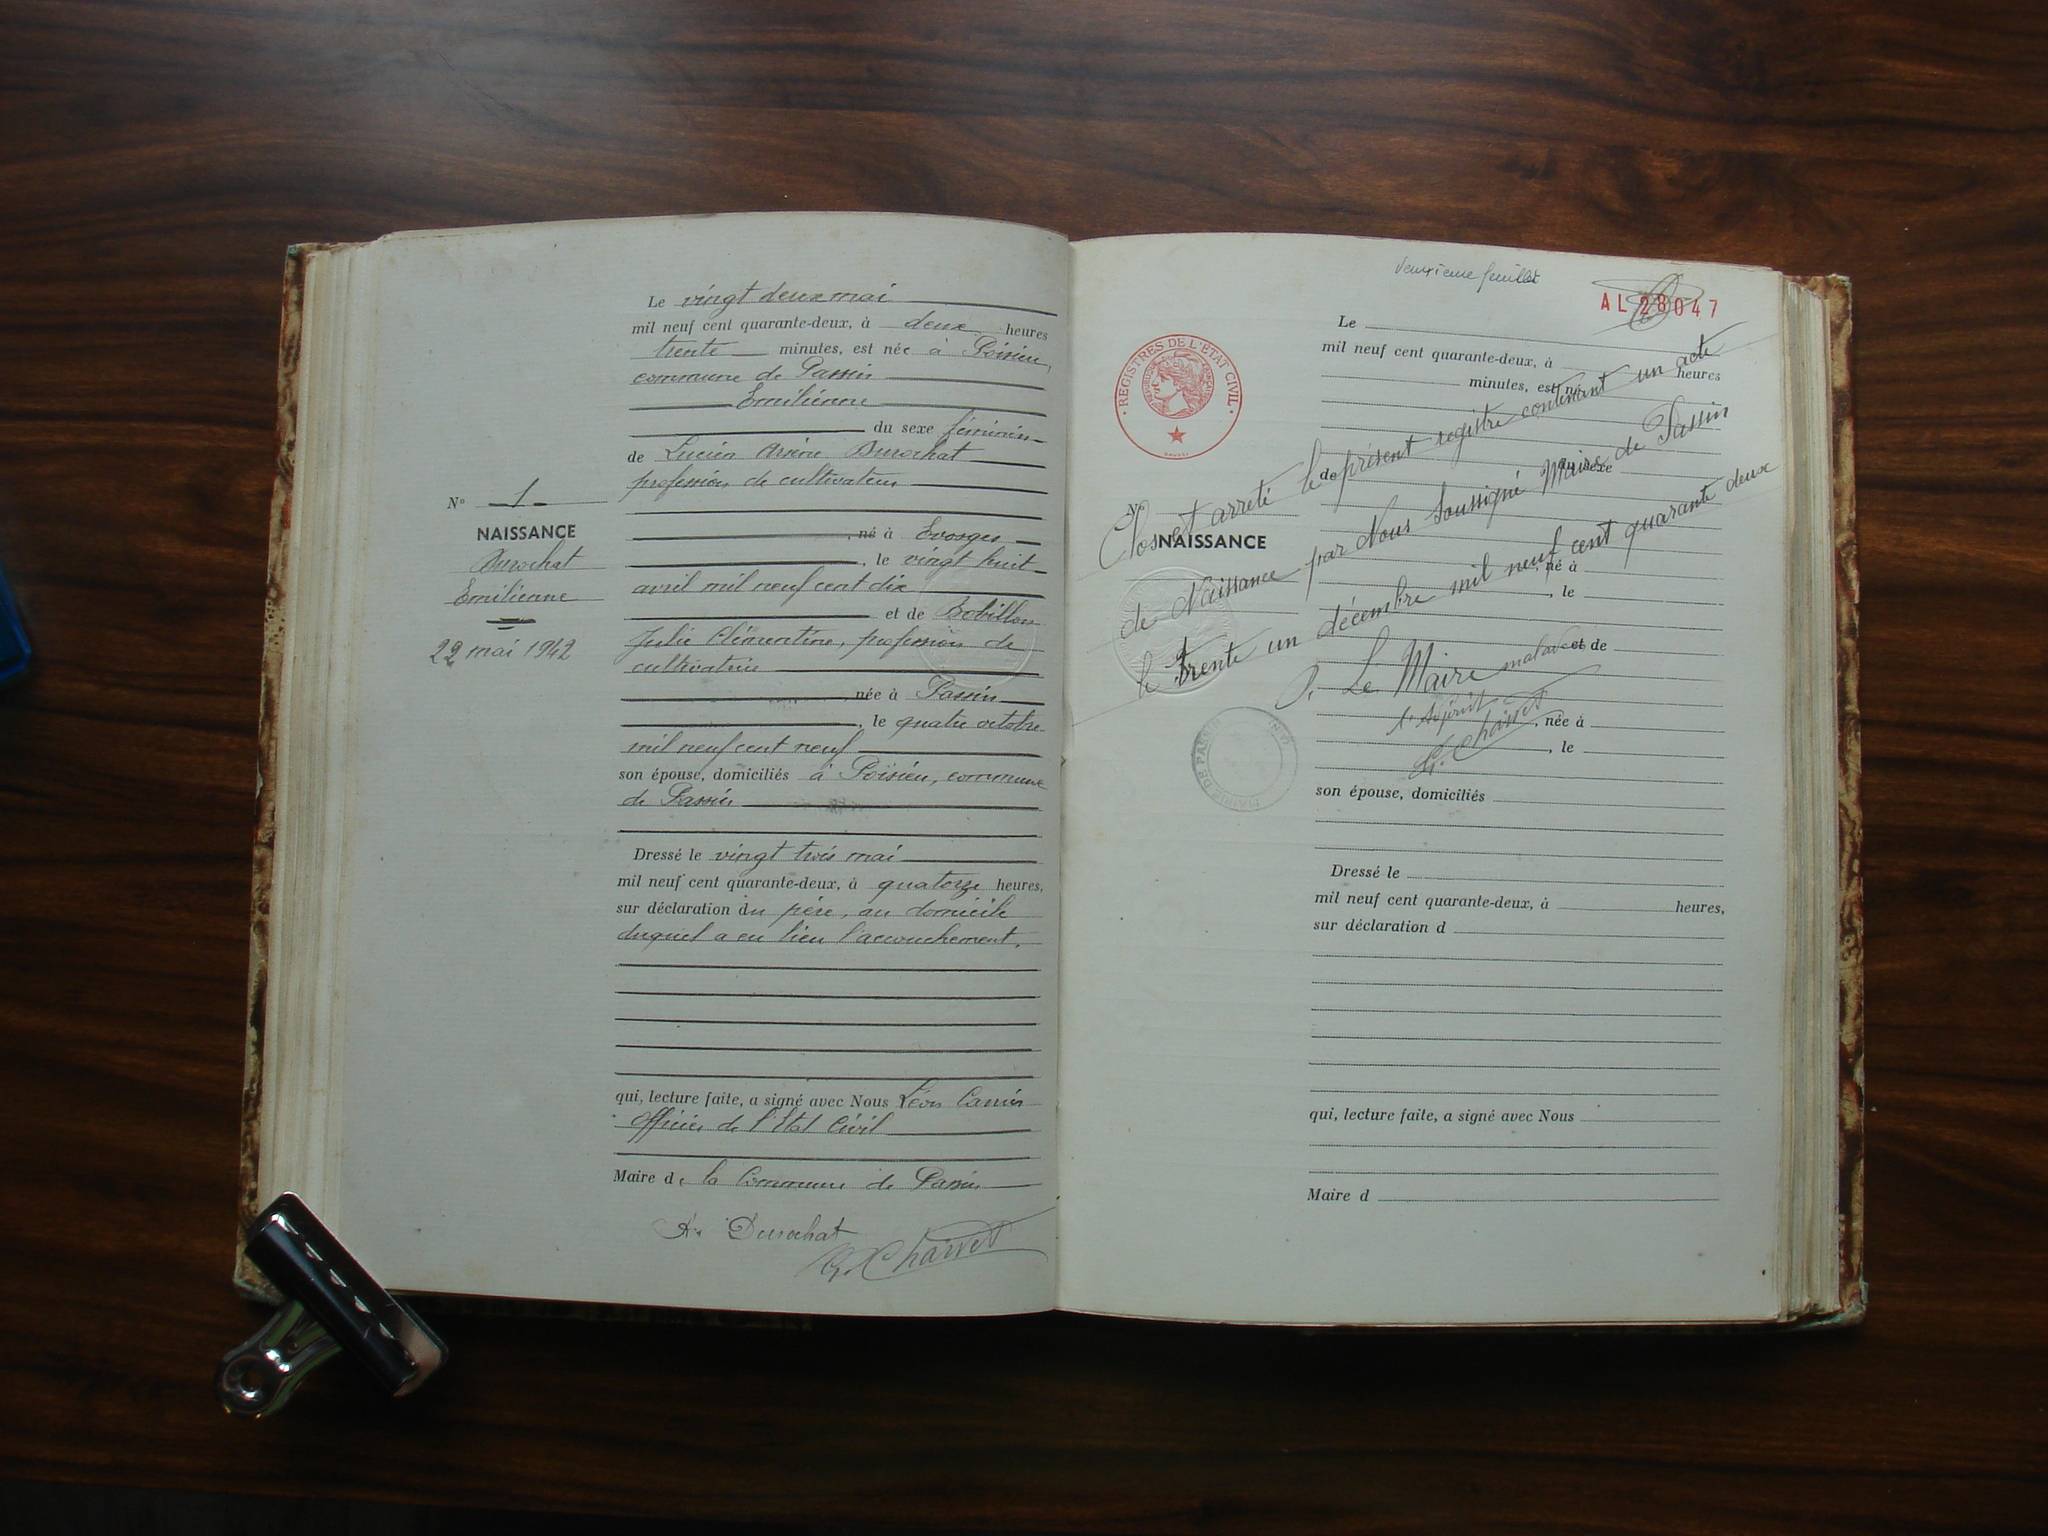 Le vingt deux mai
mil neuf cent quarante-deux, à deux heures
trente minutes, est née à Poisieu,
commune de Passin
Emilienne
du sexe féminin
de Lucien Arsène Durochat
profession de cultivateur
, né à Evosges
, le vingt huit
avril mil neuf cent dix
et de Bobillon
Julie Clémentine, profession de
cultivatrice
, née à Passin
, le quatre octobre
mil neuf cent neuf
son épouse, domiciliés à Poisieu, commune
de Passin
Dressé le vingt trois mai
mil neuf cent quarante-deux, à quatorze heures,
sur déclaration du père, au domicile
duquel a eu lieu l'accouchement.
qui, lecture faite, a signé avec Nous Léon
Officier de l'Etat Civil
Maire de la Commune de Passin
A. Durochat
G. Chaivet
N° 1
NAISSANCE
Durochat
Emilienne
22 mai 1942
deuxième feuillet
AL 28047
REGISTRES DE L'ETAT CIVIL
Le
mil neuf cent quarante-deux, à heures
minutes, est né
du sexe
de
N°
NAISSANCE
, né à
, le
et de
, née à
, le
son épouse, domiciliés
Dressé le
mil neuf cent quarante-deux, à heures,
sur déclaration d
qui, lecture faite, a signé avec Nous
Maire d
Clos et arrêté le présent registre contenant un acte
de Naissance par Nous Soussigné Maire de Passin
le trente un décembre mil neuf cent quarante deux
P. Le Maire malade
l'Adjoint
G. Chaivet
MAIRIE DE PASSIN